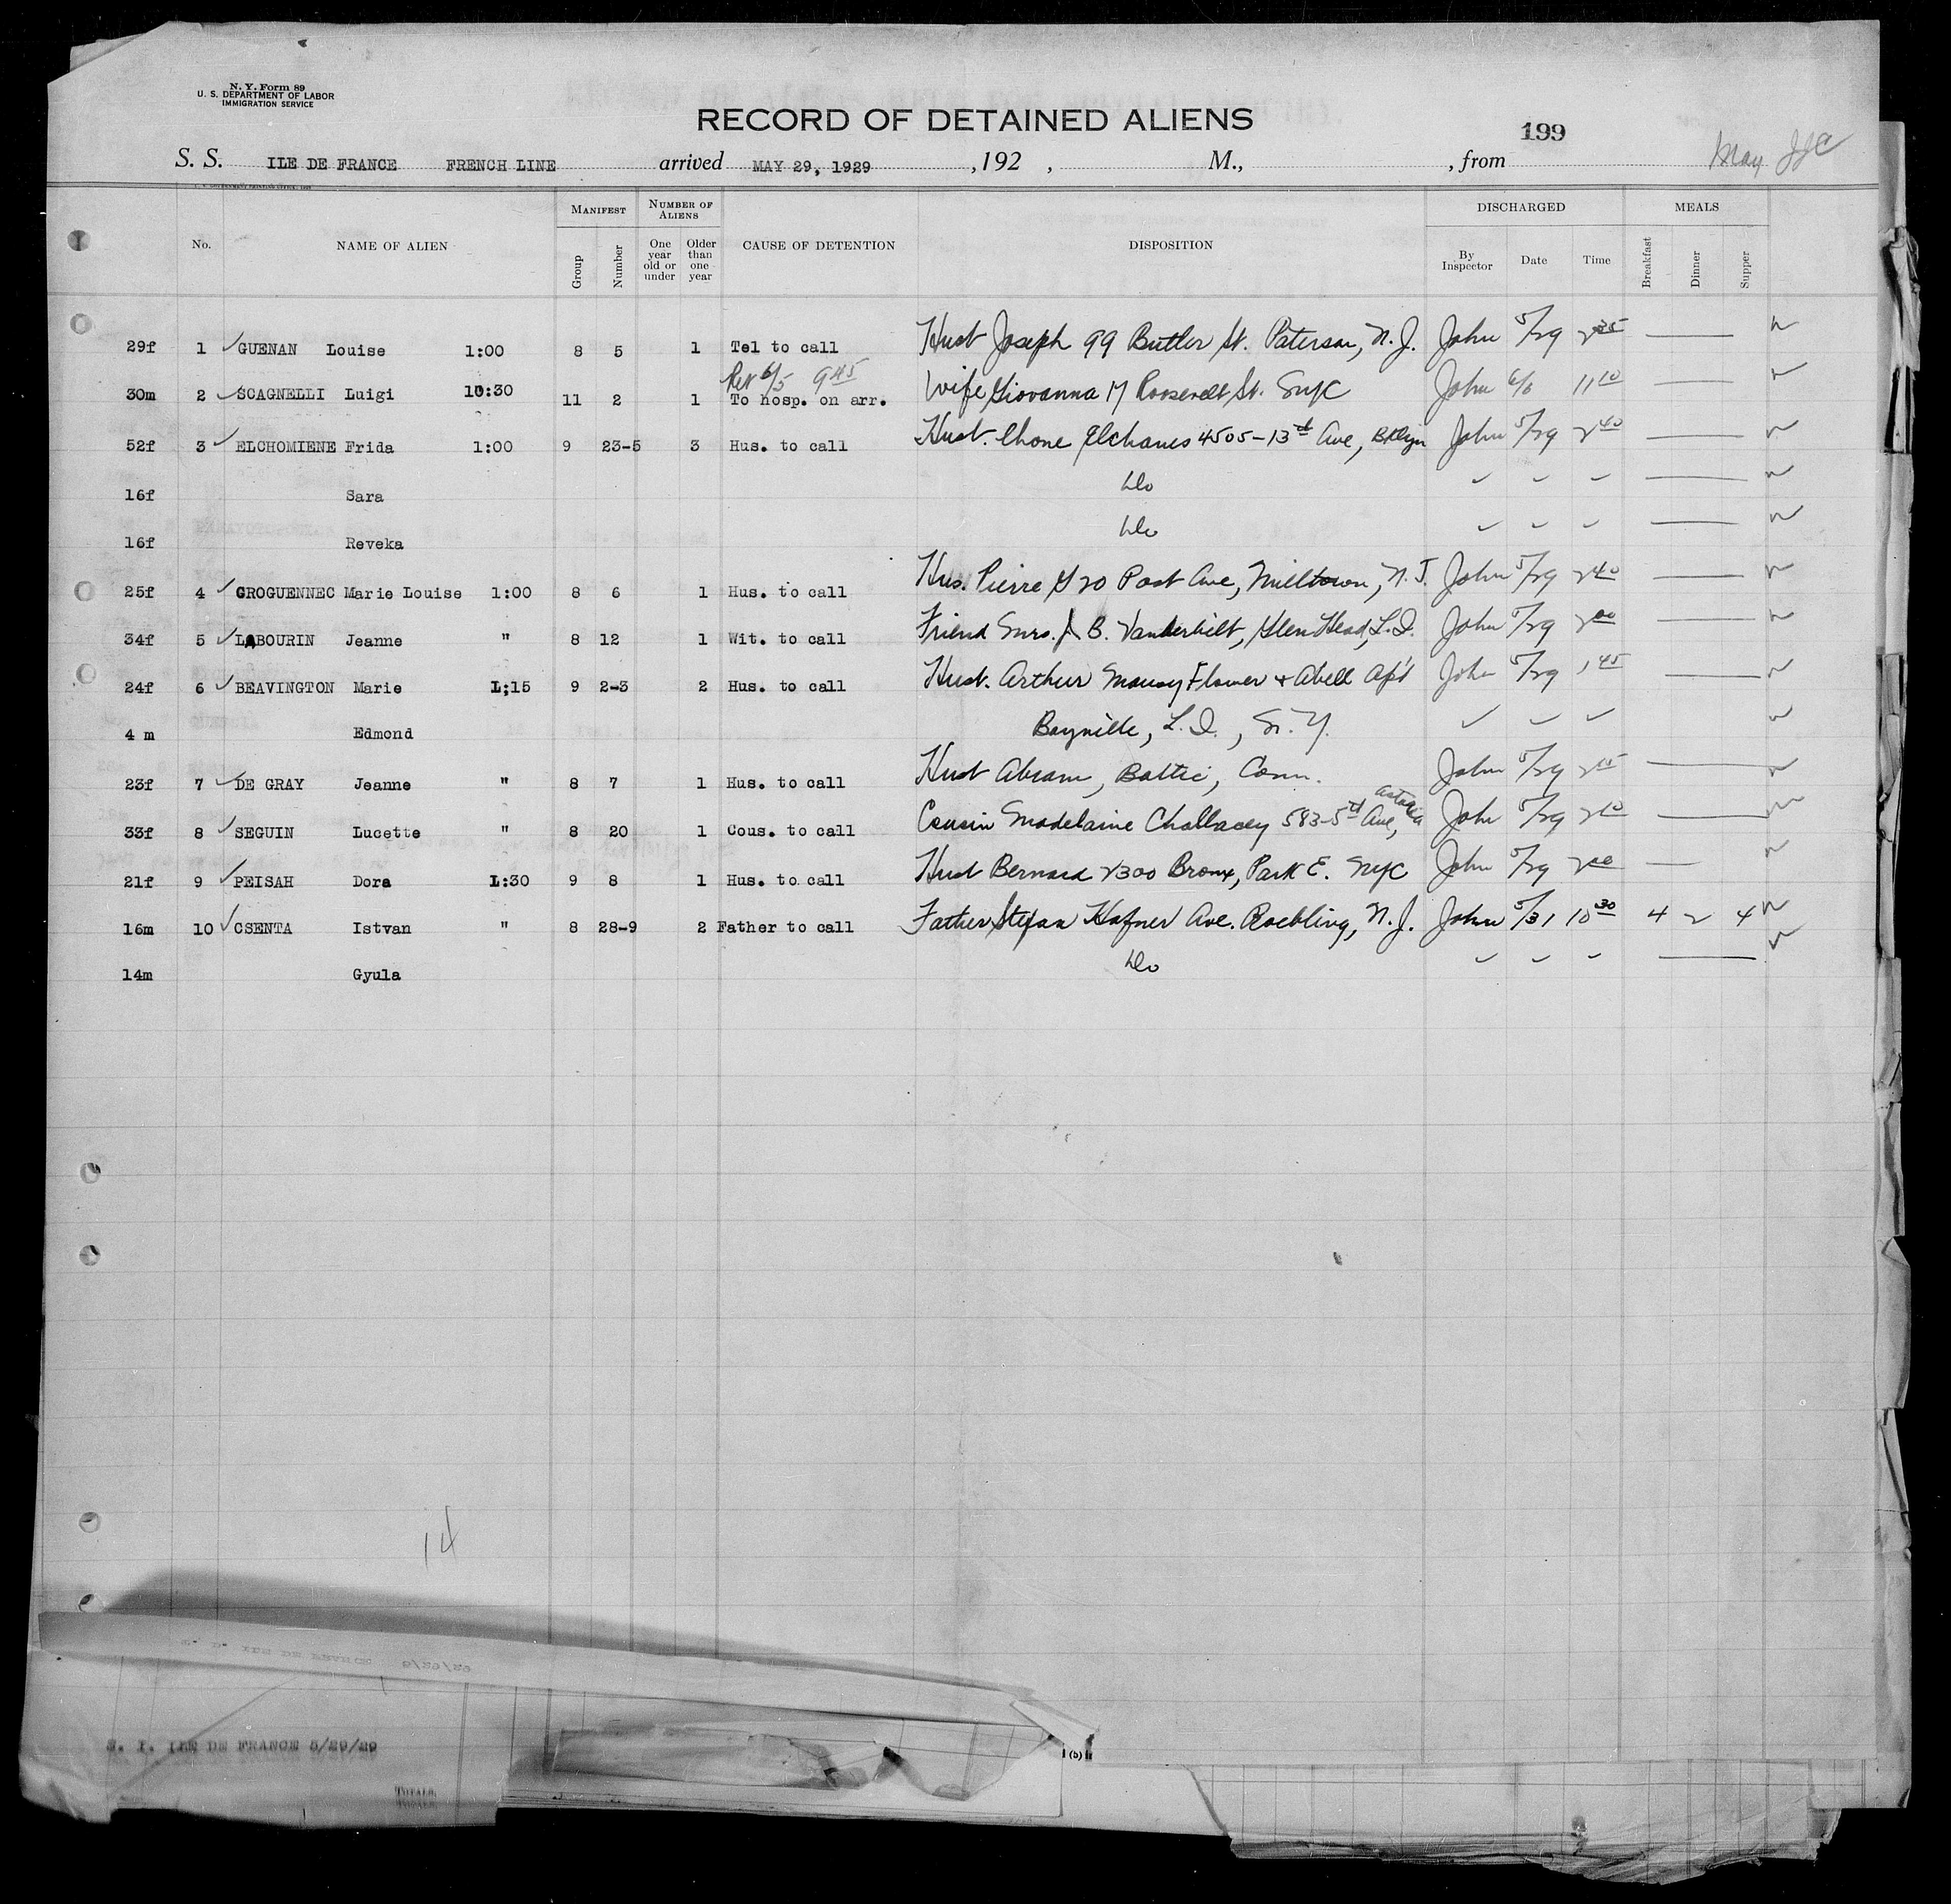 N. Y. Form 89
U. S. DEPARTMENT OF LABOR
IMMIGRATION SERVICE
RECORD OF DETAINED ALIENS
199
S. S. ILE DE FRANCE FRENCH LINE arrived MAY 29, 1929 , 192 , M., , from May
MANIFEST NUMBER OF ALIENS DISCHARGED MEALS
No. NAME OF ALIEN Group Number One year old or under Older than one year CAUSE OF DETENTION DISPOSITION By Inspector Date Time Breakfast Dinner Supper
29f 1 GUENAN Louise 1:00 8 5 1 Tel to call Husb Joseph 99 Butler St. Paterson, N. J. John 5/29 2 35
Ret 6/5 9 45
30m 2 SCAGNELLI Luigi 10:30 11 2 1 To hosp. on arr. Wife Giovanna 17 Roosevelt St. NYC John 6/6 11 10
52f 3 ELCHOMIENE Frida 1:00 9 23-5 3 Hus. to call Husb. Chone Elchanes 4505-13th Ave, Bklyn John 5/29 2 40
16f Sara Do
16f Reveka Do
25f 4 GROGUENNEC Marie Louise 1:00 8 6 1 Hus. to call Hus. Pierre 20 Post Ave, Milltown, N. J. John 5/29 2 40
34f 5 LABOURIN Jeanne " 8 12 1 Wit. to call Friend Mrs. J. B. Vanderbilt, Glen Head, L. I. John 5/29 2 00
24f 6 BEAVINGTON Marie L;15 9 2-3 2 Hus. to call Husb. Arthur Flower & Abell Apt John 5/29 1 45
4 m Edmond Bayville, L. I., N. Y.
23f 7 DE GRAY Jeanne " 8 7 1 Hus. to call Husb Abram, Baltic, Conn. John 5/29
33f 8 SEGUIN Lucette " 8 20 1 Cous. to call Cousin Madelaine Challacey 583-5th Ave, Astoria John 5/29 2 10
21f 9 PEISAH Dora L:30 9 8 1 Hus. to call Husb Bernard 2300 Bronx, Park E. NYC John 5/29 2 00
16m 10 CSENTA Istvan " 8 28-9 2 Father to call Father Stefan Hafner Ave. Roebling, N. J. John 5/31 10 30 4 2 4
14m Gyula Do
14
S. I. ILE DE FRANCE 5/29/29
(5)
TOTALS